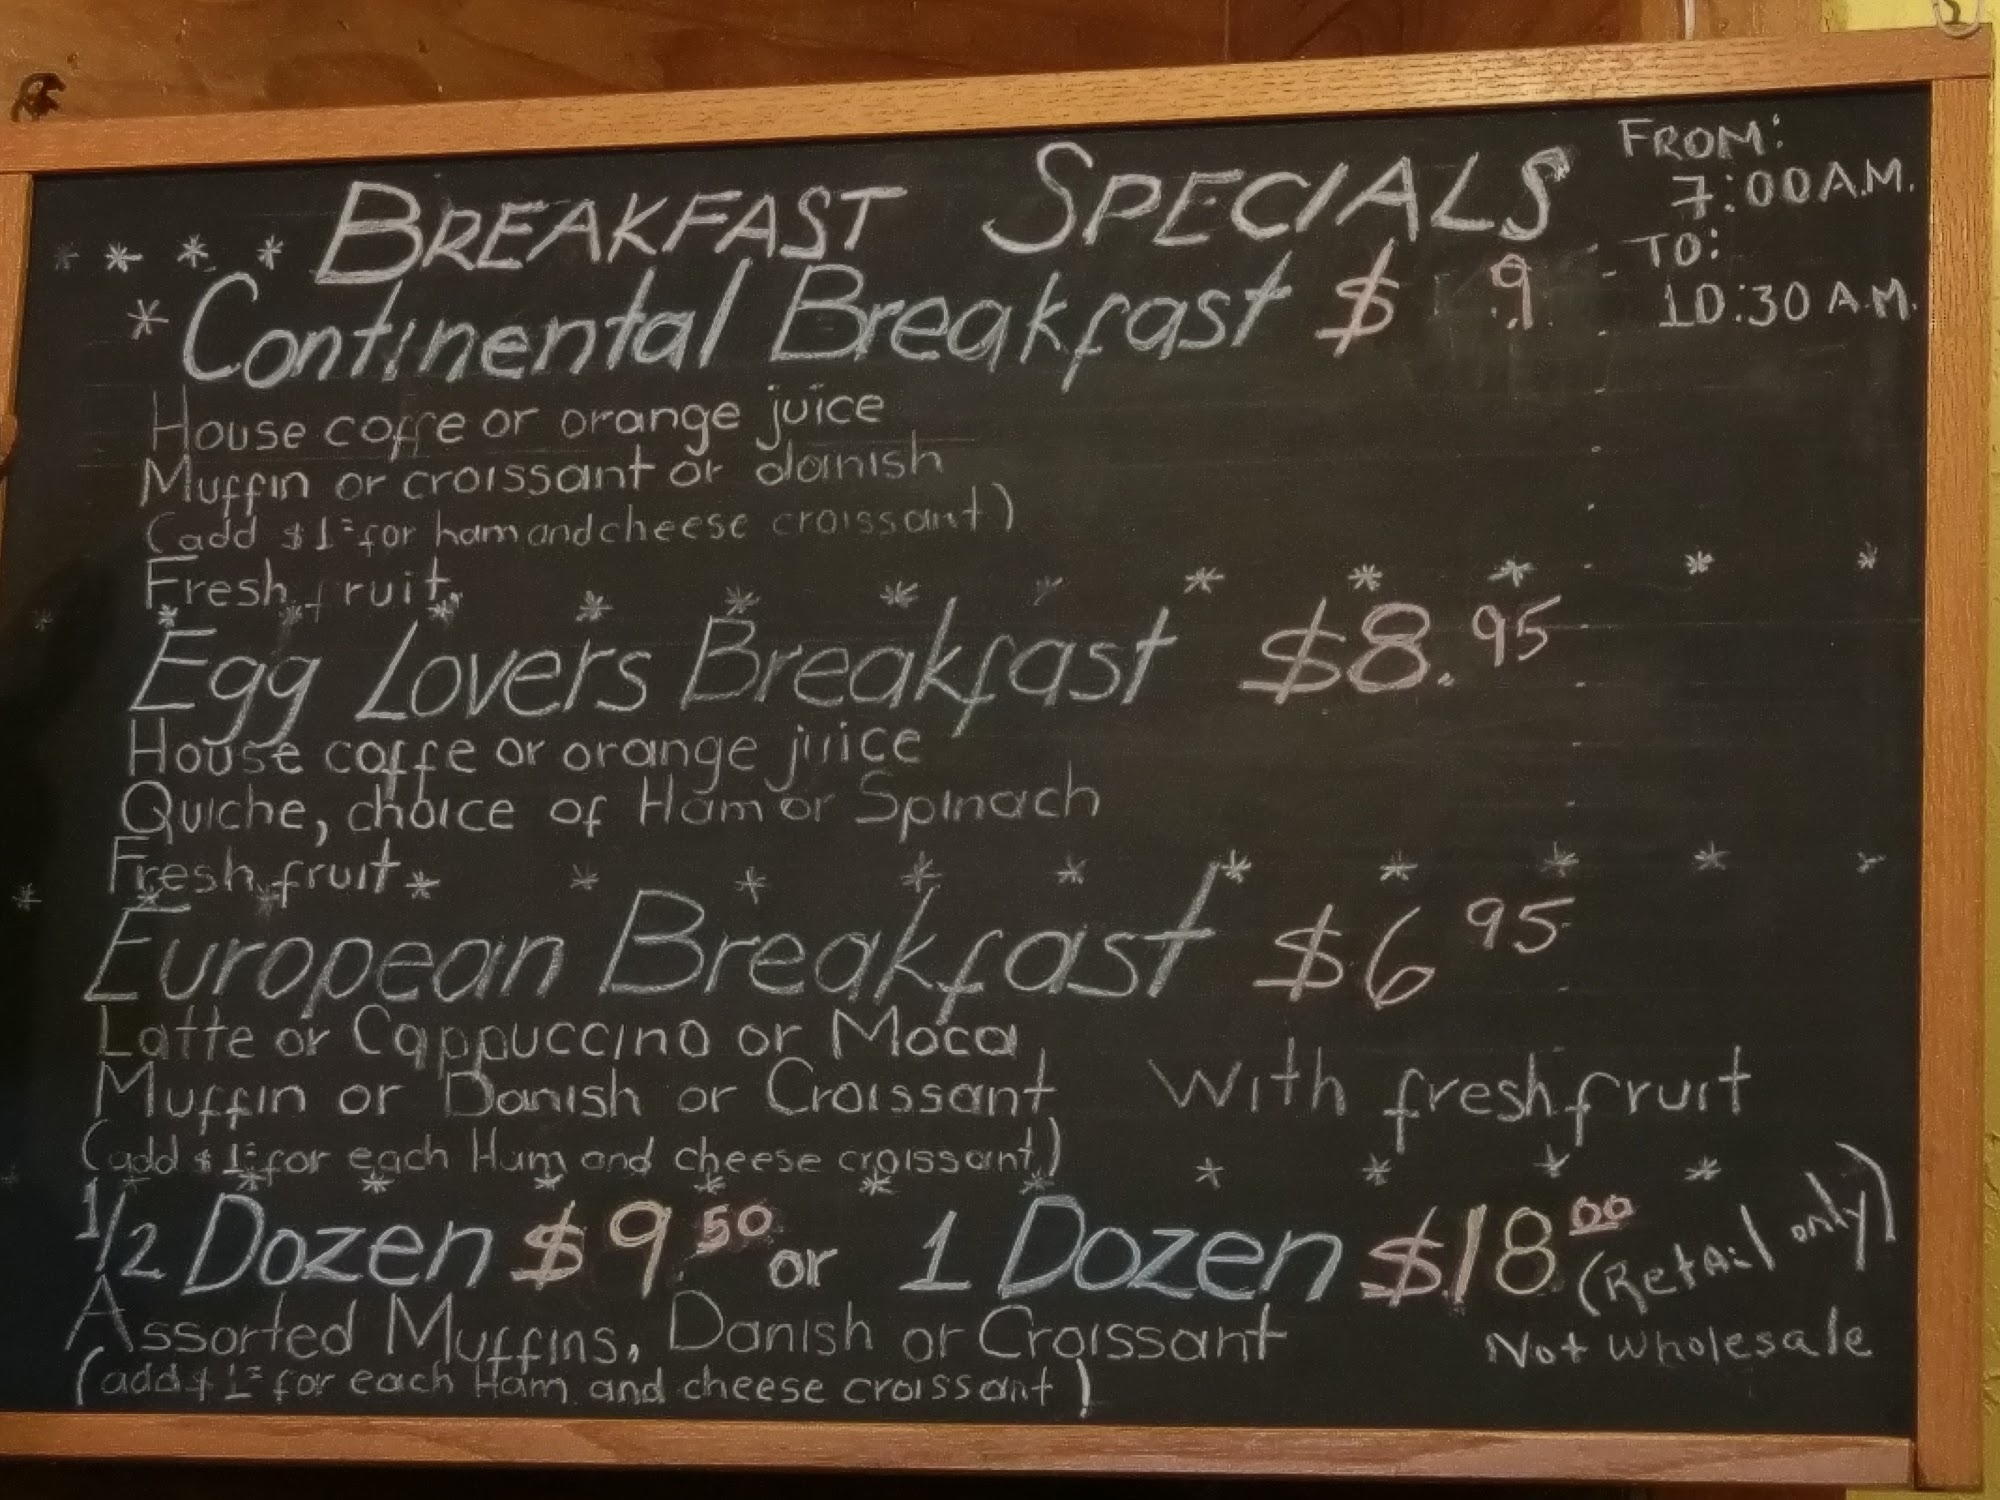 BREAKFAST SPECIALS
FROM:
7:00 A.M.
TO:
10:30 A.M.
Continental Breakfast $ 9
House coffe or orange juice
Muffin or croissant or danish
(add $1= for ham and cheese croissant)
Fresh fruit
Egg Lovers Breakfast $8.95
House coffe or orange juice
Quiche, choice of Ham or Spinach
Fresh fruit
European Breakfast $6 95
Latte or Cappuccino or Moca
Muffin or Danish or Croissant
with fresh fruit
(add $1= for each Ham and cheese croissant)
1/2 Dozen $9 50 or 1 Dozen $18 00
(Retail only)
Assorted Muffins, Danish or Croissant
Not Wholesale
(add $1= for each Ham and cheese croissant)